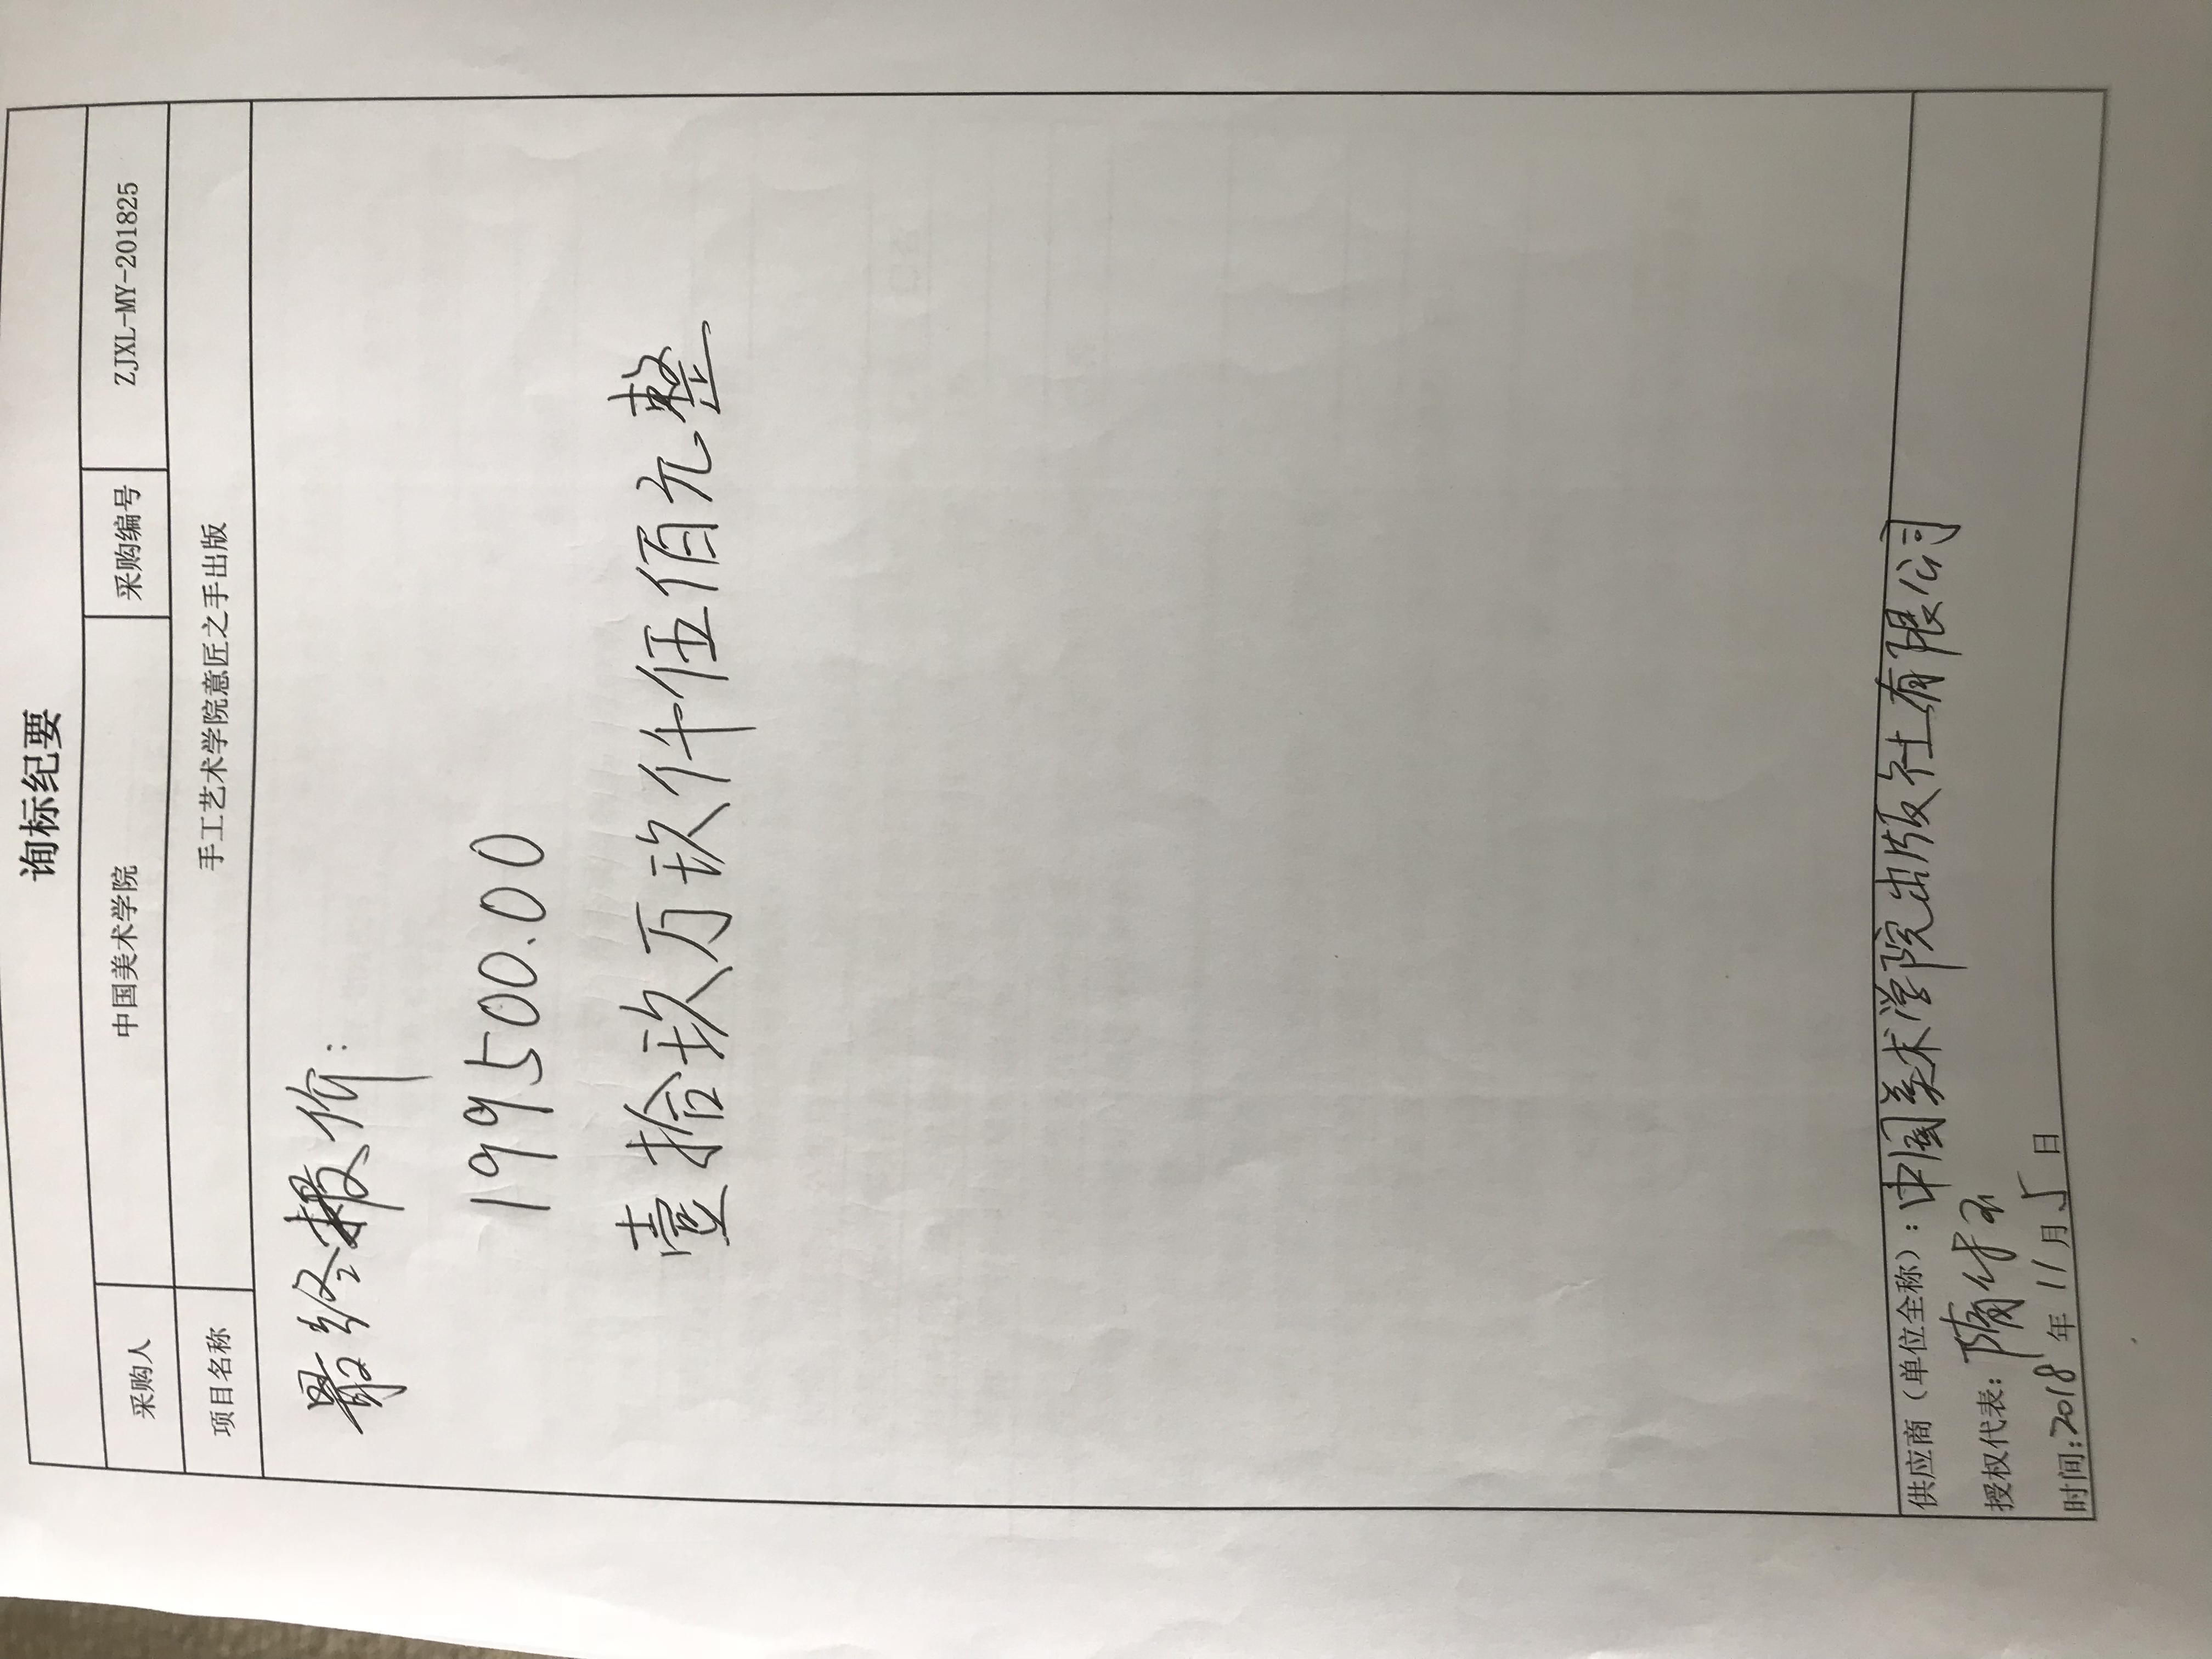 询标纪要
采购人 中国美术学院 采购编号 ZJXL-MY-201825
项目名称 手工艺术学院意匠之手出版
最终报价：
199500.00
壹拾玖万玖仟伍佰元整
供应商（单位全称）：中国美术学院出版社有限公司
授权代表：隋
时间：2018年11月5日